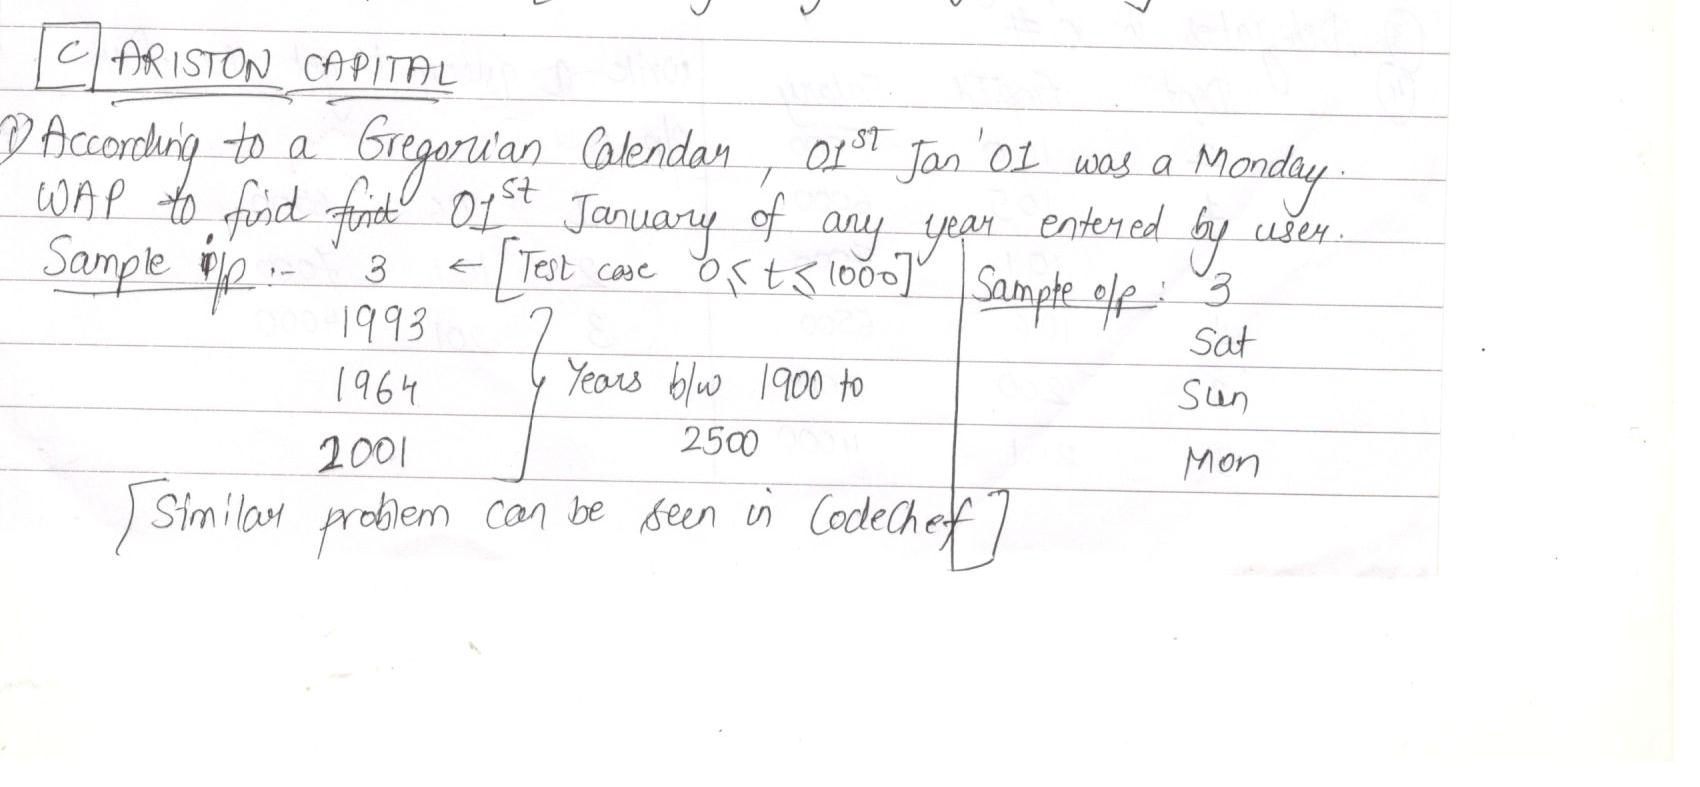 C ARISTON CAPITAL
1) According to a Gregorian Calendar, 01ST Jan '01 was a Monday.
WAP to find find 01st January of any year entered by user.
Sample i/p :- 3 ← [Test case 0≤t≤1000]
1993
1964 } Years b/w 1900 to
2001 2500
Sample o/p : 3
Sat
Sun
Mon
[Similar problem can be seen in CodeChef]